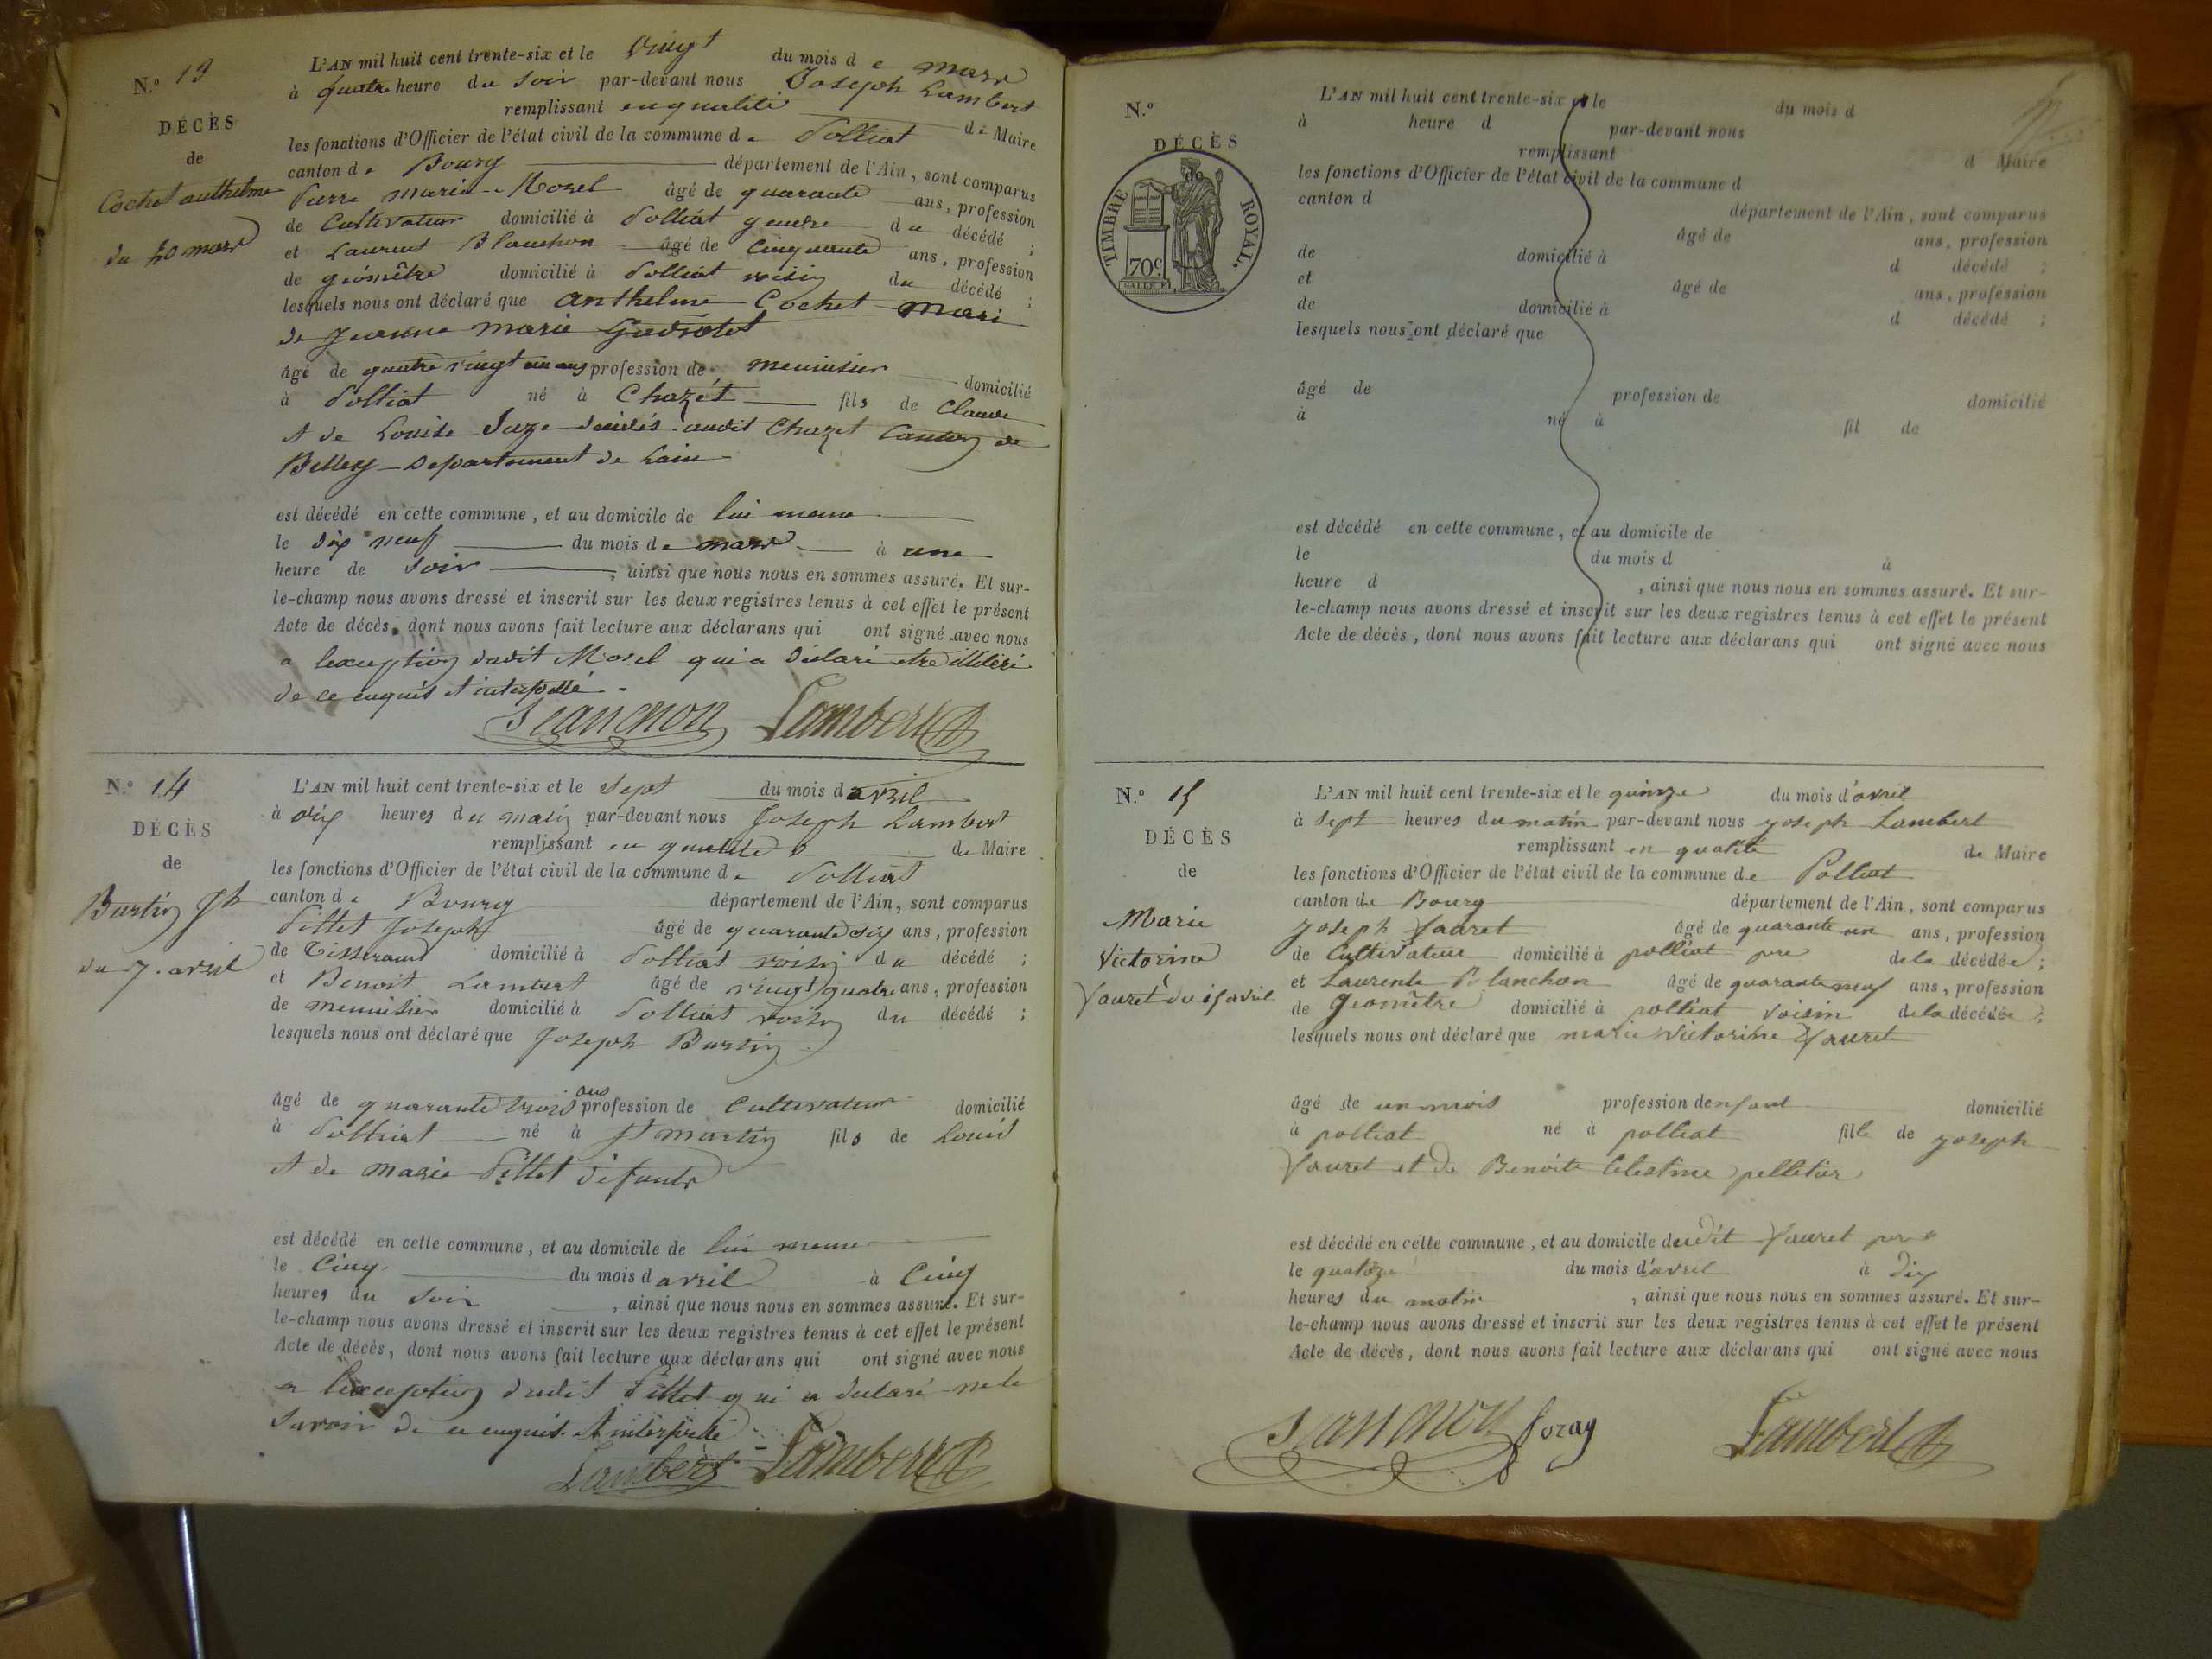 N.o 13
DÉCÈS
de
Cochet anthelme
du 20 mars
L'AN mil huit cent trente-six et le vingt du mois de mars
à quatre heure du soir par-devant nous Joseph Lambert
remplissant en qualité de Maire
les fonctions d'Officier de l'état civil de la commune de Polliat
canton de Bourg département de l'Ain, sont comparus
Pierre Marie Morel âgé de quarante ans, profession
de Cultivateur domicilié à Polliat gendre du décédé ;
et Laurent Blanchon âgé de cinquante ans, profession
de géomêtre domicilié à Polliat voisin du décédé ;
lesquels nous ont déclaré que anthelme Cochet mari
de Jeanne marie
âgé de quatre vingt un ans profession de menuisier domicilié
à Polliat né à Chazét fils de Claude
et de Louise Suze décédés audit Chazet Canton de
Belley Departement de Lain
est décédé en cette commune, et au domicile de lui meme
le dix neuf du mois de mars à une
heure de soir, ainsi que nous nous en sommes assuré. Et sur-
le-champ nous avons dressé et inscrit sur les deux registres tenus à cet effet le présent
Acte de décès, dont nous avons fait lecture aux déclarans qui ont signé avec nous
a lexception dudit Morel qui a déclaré etre illiteré
de ce enquis et interpellé.
Blanchon Lambert
N.o 14
DÉCÈS
de
Burtin Jh
du 7. avril
L'AN mil huit cent trente-six et le sept du mois d avril
à dix heures du matin par-devant nous Joseph Lambert
remplissant en qualité de Maire
les fonctions d'Officier de l'état civil de la commune de Polliat
canton de Bourg département de l'Ain, sont comparus
Pillet Joseph âgé de quarante six ans, profession
de Tisserand domicilié à Polliat voisin du décédé ;
et Benoit Lambert âgé de vingt quatre ans, profession
de menuisier domicilié à Polliat voisin du décédé ;
lesquels nous ont déclaré que Joseph Burtin
âgé de quarante trois ans profession de Cultivateur domicilié
à Polliat né à St martin fils de Louis
et de marie Pillet défunts
est décédé en cette commune, et au domicile de lui meme
le Cinq du mois d avril à Cinq
heures du soir, ainsi que nous nous en sommes assuré. Et sur-
le-champ nous avons dressé et inscrit sur les deux registres tenus à cet effet le présent
Acte de décès, dont nous avons fait lecture aux déclarans qui ont signé avec nous
a lexception dudit Pillet qui a déclaré ne le
savoir de ce enquis et interpellé
Lambert Lambert
N.o
DÉCÈS
de
TIMBRE ROYAL.
70c.
L'AN mil huit cent trente-six et le du mois d
à heure d par-devant nous
remplissant d Maire
les fonctions d'Officier de l'état civil de la commune d
canton d département de l'Ain, sont comparus
âgé de ans, profession
de domicilié à d décédé ;
et âgé de ans, profession
de domicilié à d décédé ;
lesquels nous ont déclaré que
âgé de profession de domicilié
à né à fil de
est décédé en cette commune, et au domicile de
le du mois d à
heure d , ainsi que nous nous en sommes assuré. Et sur-
le-champ nous avons dressé et inscrit sur les deux registres tenus à cet effet le présent
Acte de décès, dont nous avons fait lecture aux déclarans qui ont signé avec nous
N.o 15
DÉCÈS
de
Marie
Victorine
Vauret du 15 avril
L'AN mil huit cent trente-six et le quinze du mois d'avril
à sept heures du matin par-devant nous joseph Lambert
remplissant en qualité de Maire
les fonctions d'Officier de l'état civil de la commune de Polliat
canton de Bourg département de l'Ain, sont comparus
joseph Vauret âgé de quarante un ans, profession
de Cultivateur domicilié à polliat pere de la décédée ;
et Laurente Blanchon âgé de quarante neuf ans, profession
de géomètre domicilié à polliat voisin de la décédée ;
lesquels nous ont déclaré que marie victorine Vauret
âgé de un mois profession denfant domicilié
à polliat né à polliat fille de joseph
Vauret et de Benoite Celestine pelletier
est décédé en cette commune, et au domicile dudit Vauret pere
le quatorze du mois d'avril à dix
heures du matin, ainsi que nous nous en sommes assuré. Et sur-
le-champ nous avons dressé et inscrit sur les deux registres tenus à cet effet le présent
Acte de décès, dont nous avons fait lecture aux déclarans qui ont signé avec nous
Blanchon foray Lambert